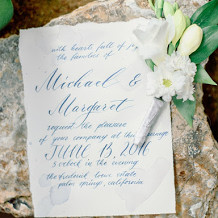 with hearts full of joy
the families of
Michael &
Margaret
request the pleasure
of your company at the marriage
JUNE 13, 2016
5 o'clock in the evening
the frederick loewe estate
palm springs, california